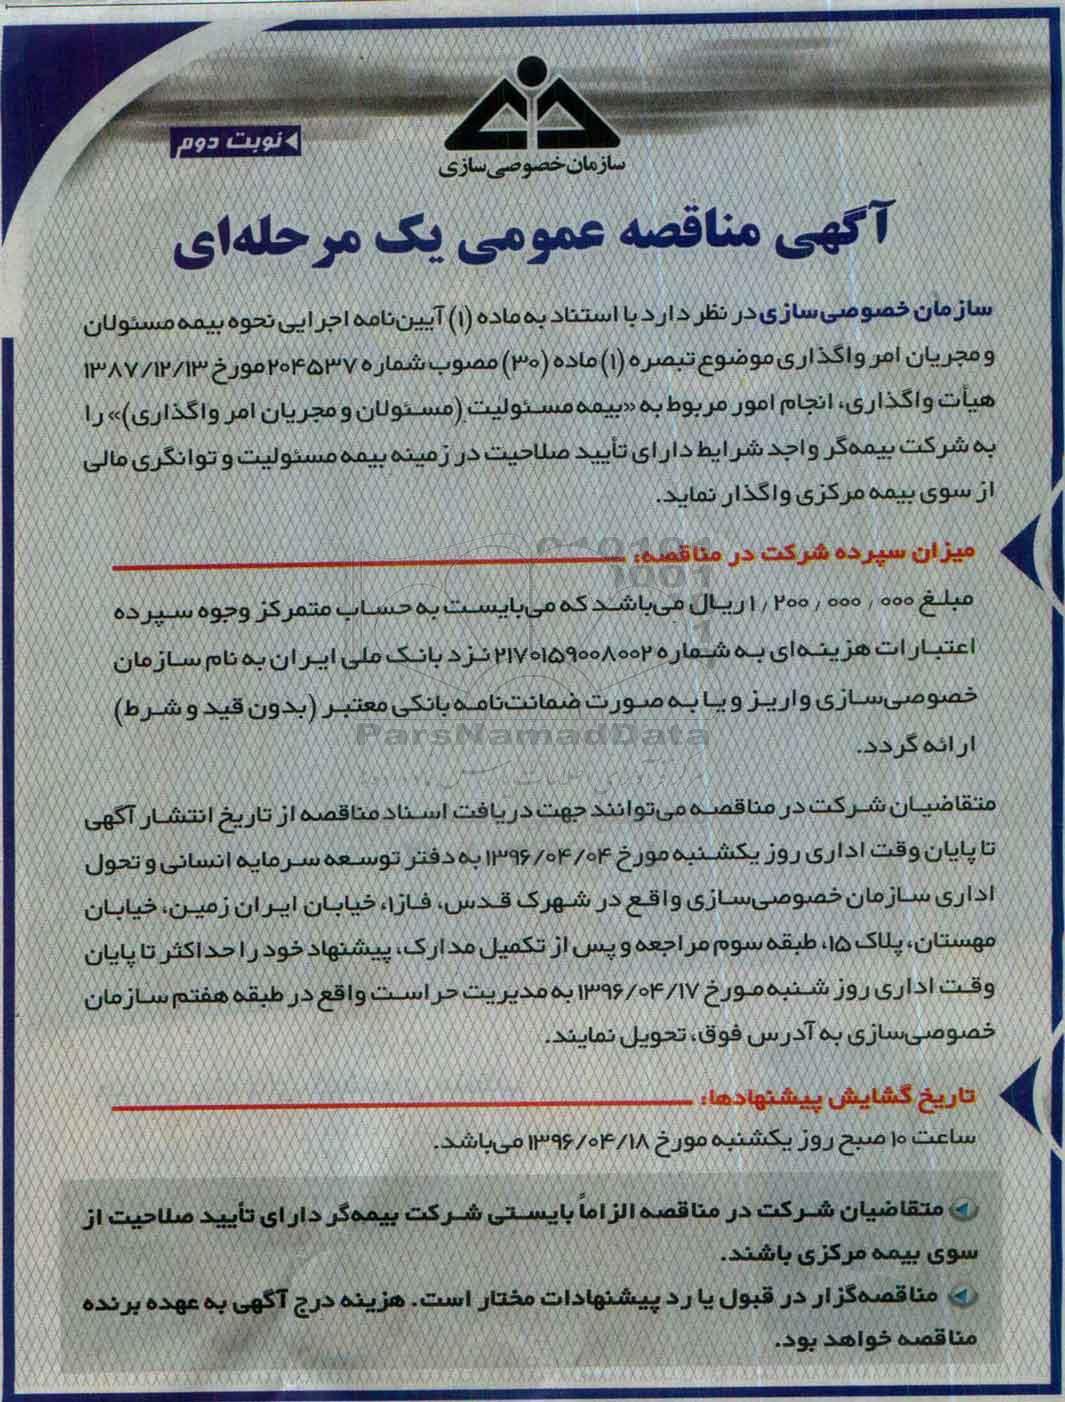 نوبت دوم
سازمان خصوصی‌سازی
آگهی مناقصه عمومی یک مرحله‌ای
سازمان خصوصی‌سازی در نظر دارد با استناد به ماده (۱) آیین‌نامه اجرایی نحوه بیمه مسئولان
و مجریان امر واگذاری موضوع تبصره (۱) ماده (۳۰) مصوب شماره ۲۰۴۵۳۷ مورخ ۱۳۸۷/۱۲/۱۳
هیأت واگذاری، انجام امور مربوط به «بیمه مسئولیت (مسئولان و مجریان امر واگذاری)» را
به شرکت بیمه‌گر واجد شرایط دارای تأیید صلاحیت در زمینه بیمه مسئولیت و توانگری مالی
از سوی بیمه مرکزی واگذار نماید.
میزان سپرده شرکت در مناقصه:
مبلغ ۱٫۲۰۰٫۰۰۰٫۰۰۰ ریال می‌باشد که می‌بایست به حساب متمرکز وجوه سپرده
اعتبارات هزینه‌ای به شماره ۲۱۷۰۱۵۹۰۰۸۰۰۲ نزد بانک ملی ایران به نام سازمان
خصوصی‌سازی واریز و یا به صورت ضمانت‌نامه بانکی معتبر (بدون قید و شرط)
ParsNamadData
ارائه گردد.
متقاضیان شرکت در مناقصه می‌توانند جهت دریافت اسناد مناقصه از تاریخ انتشار آگهی
تا پایان وقت اداری روز یکشنبه مورخ ۱۳۹۶/۰۴/۰۴ به دفتر توسعه سرمایه انسانی و تحول
اداری سازمان خصوصی‌سازی واقع در شهرک قدس، فاز۱، خیابان ایران زمین، خیابان
مهستان، پلاک ۱۵، طبقه سوم مراجعه و پس از تکمیل مدارک، پیشنهاد خود را حداکثر تا پایان
وقت اداری روز شنبه مورخ ۱۳۹۶/۰۴/۱۷ به مدیریت حراست واقع در طبقه هفتم سازمان
خصوصی‌سازی به آدرس فوق، تحویل نمایند.
تاریخ گشایش پیشنهادها:
ساعت ۱۰ صبح روز یکشنبه مورخ ۱۳۹۶/۰۴/۱۸ می‌باشد.
متقاضیان شرکت در مناقصه الزاماً بایستی شرکت بیمه‌گر دارای تأیید صلاحیت از
سوی بیمه مرکزی باشند.
مناقصه‌گزار در قبول یا رد پیشنهادات مختار است. هزینه درج آگهی به عهده برنده
مناقصه خواهد بود.